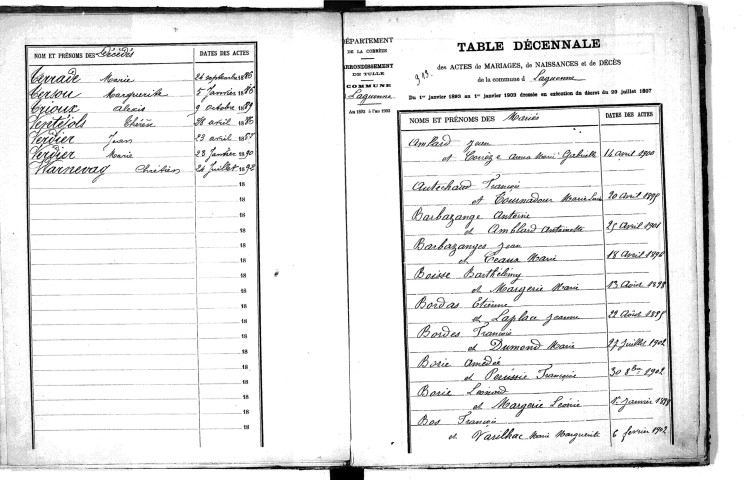 NOM ET PRÉNOMS DES Décédés
DATES DES ACTES
Terrade Marie 24 septembre 1886
Marguerite 5 Janvier 1886
Trioux Alexis 9 octobre 1889
Ventéjols Thérèse 28 avril 1886
Verdier Jean 23 avril 1887
Verdier Marie 23 Janvier 1890
Warnevag Chrétien 24 Juillet 1892
18
18
18
18
18
18
18
18
18
18
18
18
18
18
18
18
DÉPARTEMENT
DE LA CORRÈZE
ARRONDISSEMENT
DE TULLE
COMMUNE
Laguenne
An 1893 à l'an 1903
TABLE DÉCENNALE
des ACTES de MARIAGES, de NAISSANCES et de DÉCÈS
de la commune d Laguenne
Du 1er janvier 1893 au 1er janvier 1903 dressée en exécution du décret du 20 juillet 1807
NOMS ET PRÉNOMS DES Mariés
DATES DES ACTES
Amblard Jean
et Corrèze Anna Marie Gabrielle 14 avril 1900
Autechaud François
et Tournadour Marie 20 avril 1895
Barbazange Antoine
et Amblard Antoinette 25 avril 1901
Barbazanges Jean
et Ceaux Marie 18 avril 1896
Boisse Barthélémy
et Margerie Marie 13 Août 1898
Bordas Etienne
et Laplace Jeanne 22 Août 1895
Bordes François
et Dumond Marie 27 Juillet 1902
Borie Amédée
et Peuissie Françoise 30 8bre 1902
Borie Léonard
et Margerie Léonie 1er Janvier 1898
Bos François
et Varilhac Marie Marguerite 6 février 1902